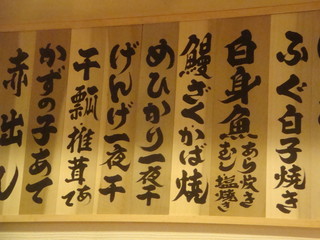 ふぐ白子焼き
白身魚 あら炊き むし 塩焼き
鰻ざくかば焼
めひかり一夜干
げんげ一夜干
干瓢椎茸あて
かずの子あて
赤出し